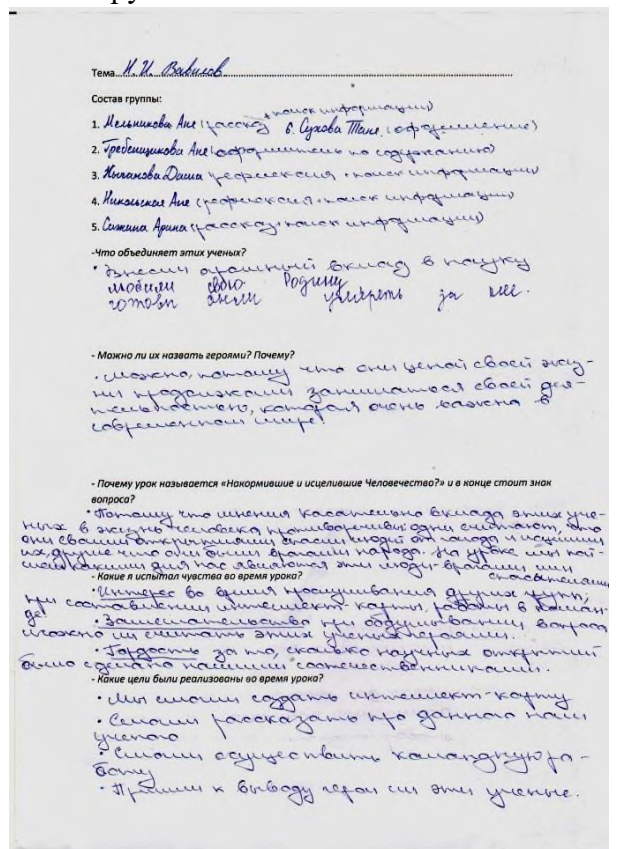 Тема Н.И. Вавилов
Состав группы:
+поиск информации)
1. Мельникова Аня (рассказ 6. Сухова Таня (оформление)
2. Гребенщикова Аня (оформитель по содержанию)
3. Даша (рефлексия + поиск информации)
4. Никольская Аня (рефлексия + поиск информации)
5. Арина (рассказ + поиск информации)
-Что объединяет этих ученых?
• Внесли огромный вклад в науку
любили свою Родину
готовы были умереть за нее.
- Можно ли их назвать героями? Почему?
• Можно, потому что они ценой своей жиз-
ни продолжали заниматься своей дея-
тельностью, которая очень важна в
современном мире!
- Почему урок называется «Накормившие и исцелившие Человечество?» и в конце стоит знак
вопроса?
• Потому что мнения касательно вклада этих уче-
ных в жизнь человека противоречивы: одни считают, что
они своими открытиями спасли людей от голода и исцелили
их, другие что они были врагами народа. На уроке мы
какими для нас являются эти люди - врагами или
спасителями
- Какие я испытал чувства во время урока?
• Интерес во время прослушивания других групп,
при составлении интеллект-карты, работы в коман-
де
• Замешательство при обдумывании вопроса
можно ли считать этих ученых героями.
• Гордость за то, сколько научных открытий
было сделано нашими соотечественниками.
- Какие цели были реализованы во время урока?
• Мы смогли создать интеллект-карту
• Смогли рассказать про данного нам
ученого
• Смогли осуществить командную ра-
боту
• Пришли к выводу герои ли эти ученые.